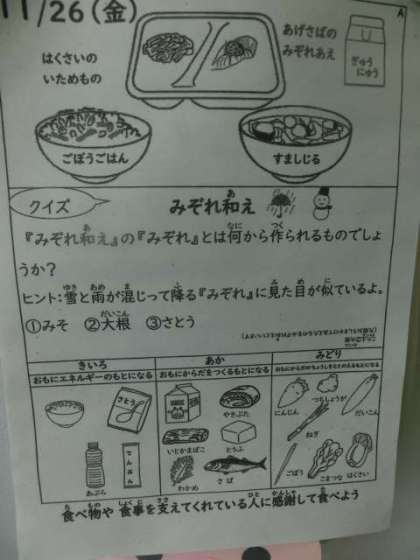 11/26(金)
A
はくさいの
いためもの
あげさばの
みぞれあえ
ぎゅう
にゅう
ごぼうごはん
すましじる
クイズ
みぞれ和え
『みぞれ和え』の『みぞれ』とは何から作られるものでしょ
うか?
ヒント:雪と雨が混じって降る『みぞれ』に見た目が似ているよ。
①みそ ②大根 ③さとう
きいろ
おもにエネルギーのもとになる
さとう
あぶら
でんぷん
あか
おもにからだをつくるもとになる
やきぶた
いとかまぼこ
とうふ
わかめ
さば
みどり
おもにからだのちょうしをととのえるもとになる
にんじん
つちしょうが
だいこん
ねぎ
ごぼう
こまつな
はくさい
食べ物や 食事を支えてくれている人に感謝して食べよう